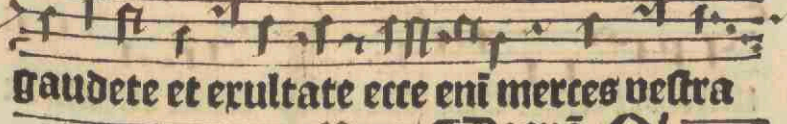 gaudete et exultate ecce enī merces vestra